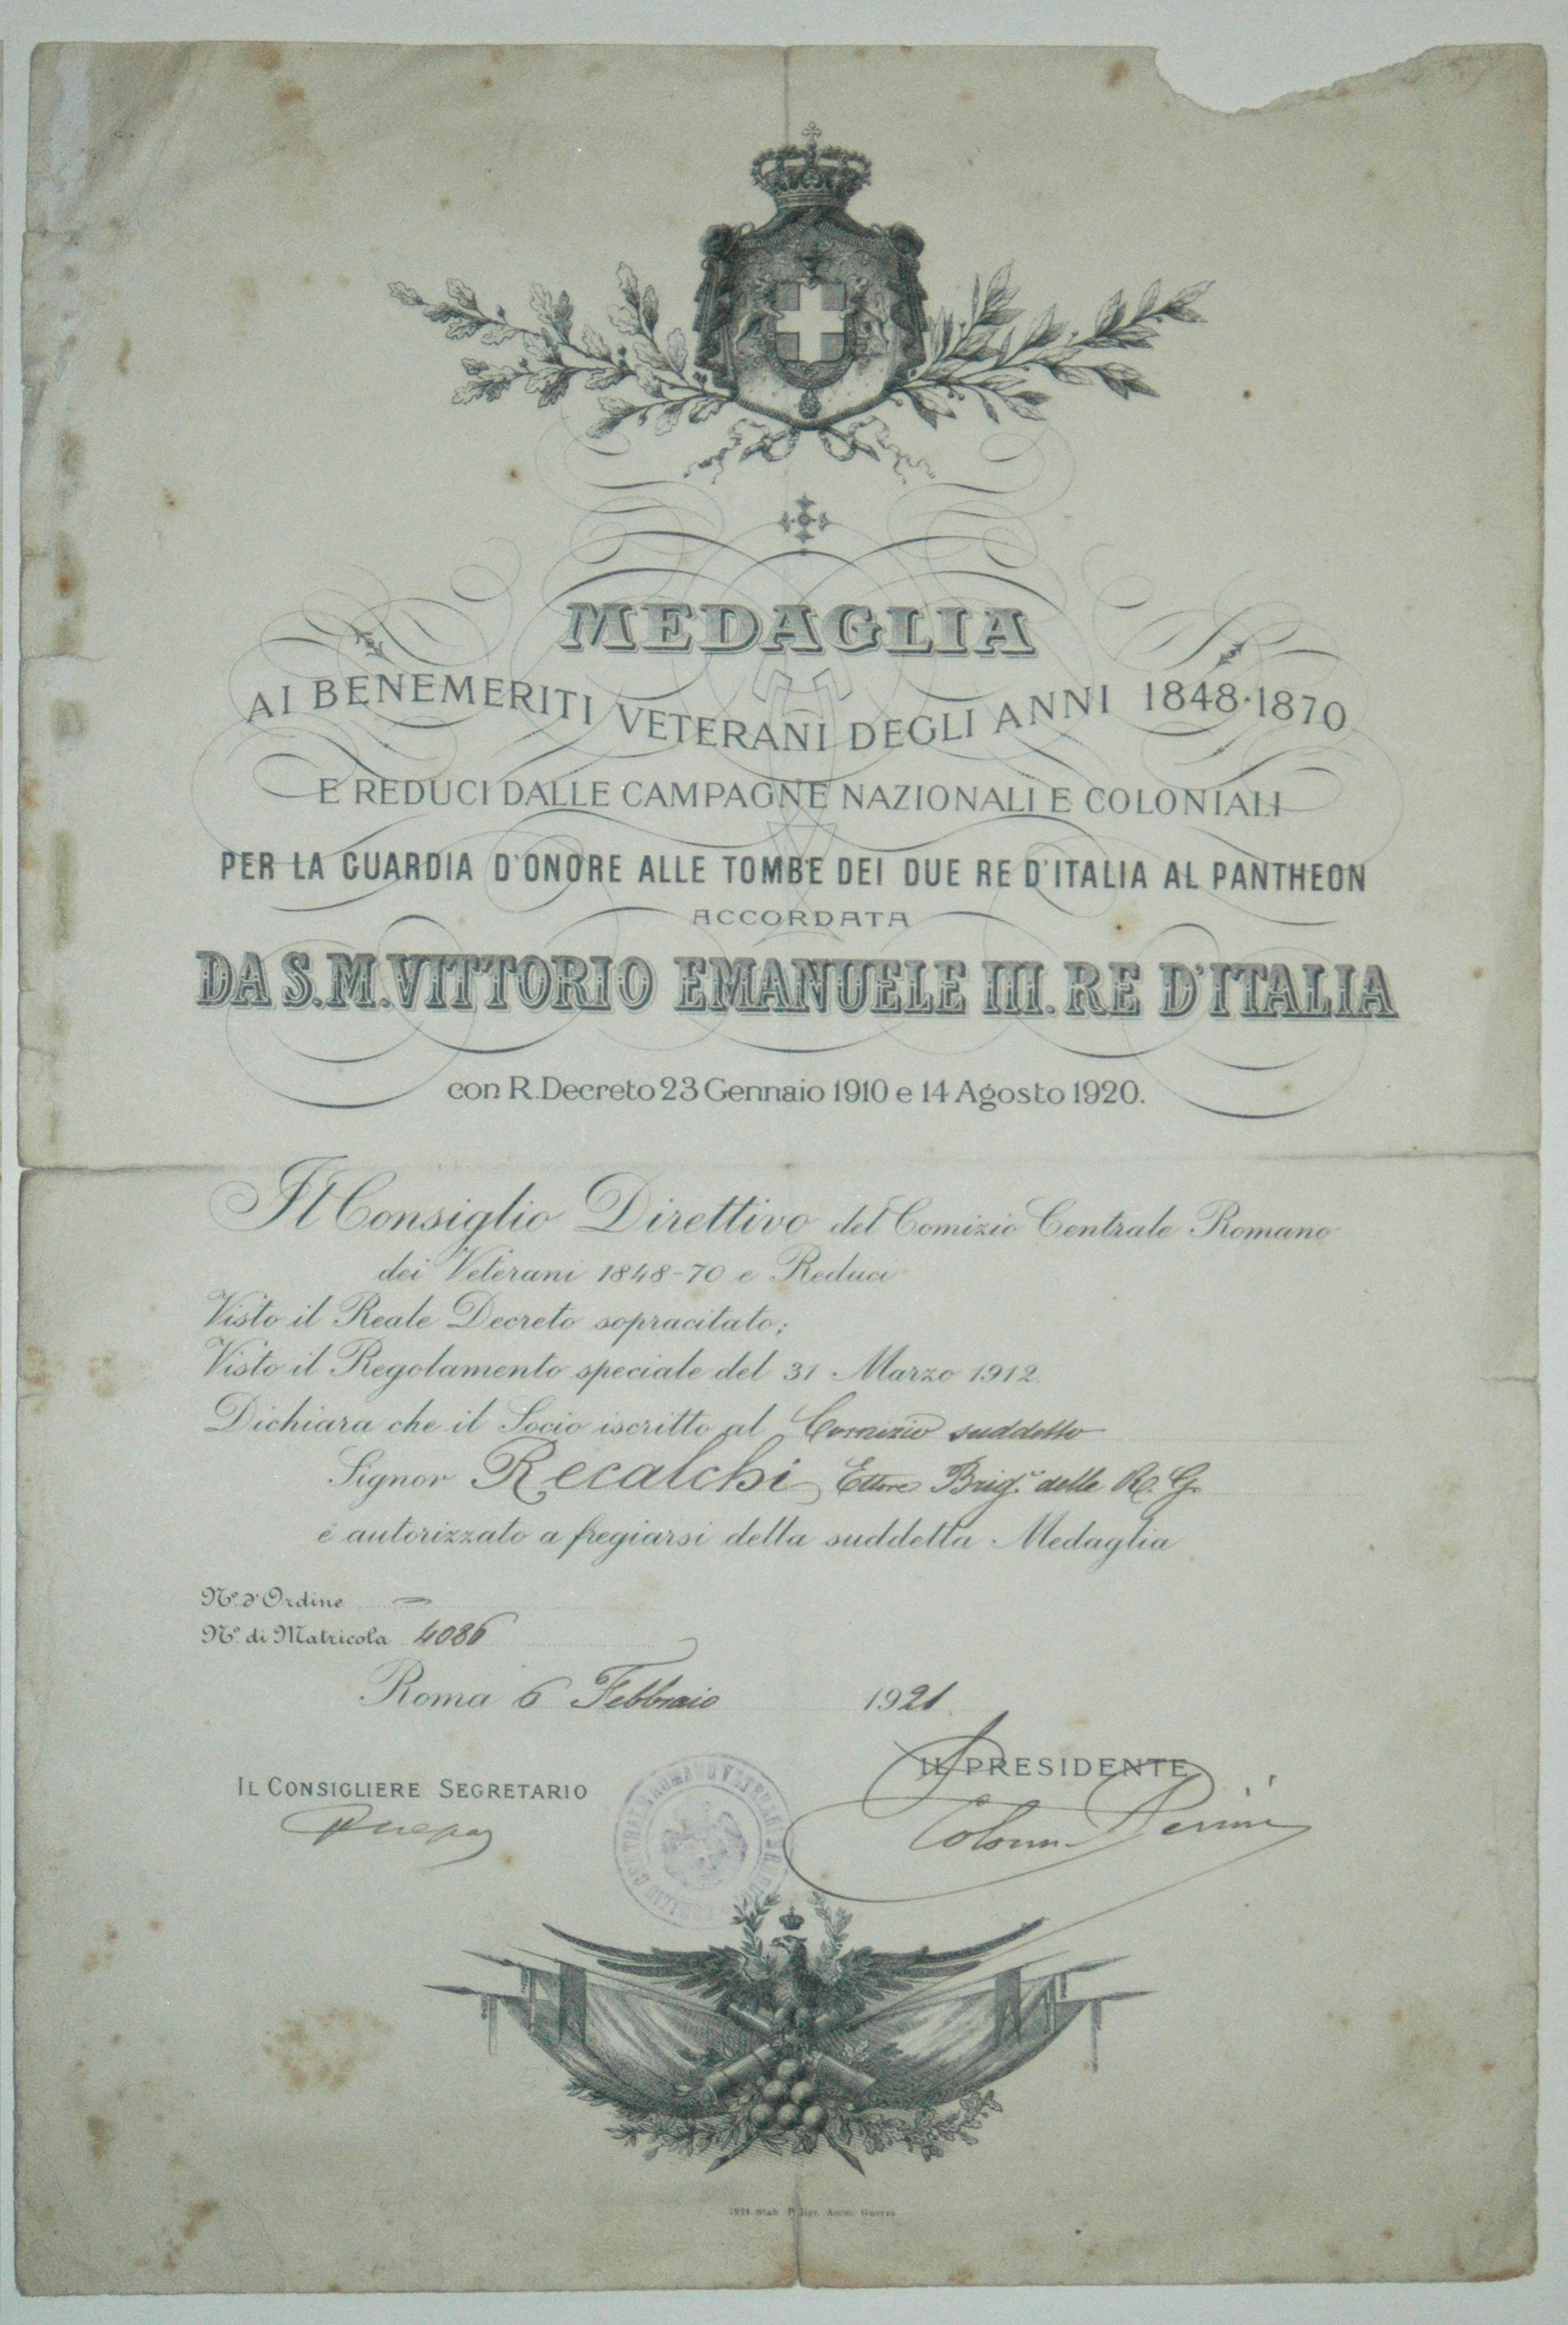 MEDAGLIA
AI BENEMERITI VETERANI DEGLI ANNI 1848-1870
E REDUCI DALLE CAMPAGNE NAZIONALI E COLONIALI
PER LA GUARDIA D'ONORE ALLE TOMBE DEI DUE RE D'ITALIA AL PANTHEON
ACCORDATA
DA S.M. VITTORIO EMANUELE III. RE D'ITALIA
con R. Decreto 23 Gennaio 1910 e 14 Agosto 1920.
Il Consiglio Direttivo del Comizio Centrale Romano
dei Veterani 1848-70 e Reduci
Visto il Reale Decreto sopracitato;
Visto il Regolamento speciale del 31 Marzo 1912.
Dichiara che il Socio iscritto al Comizio suddetto
Signor Recalchi Ettore Brig.e delle R. G.
è autorizzato a fregiarsi della suddetta Medaglia
Nº d'Ordine —
Nº di Matricola 4086
Roma 6 Febbraio 1921
IL CONSIGLIERE SEGRETARIO
IL PRESIDENTE
1921 Stab. Amm. Guerra